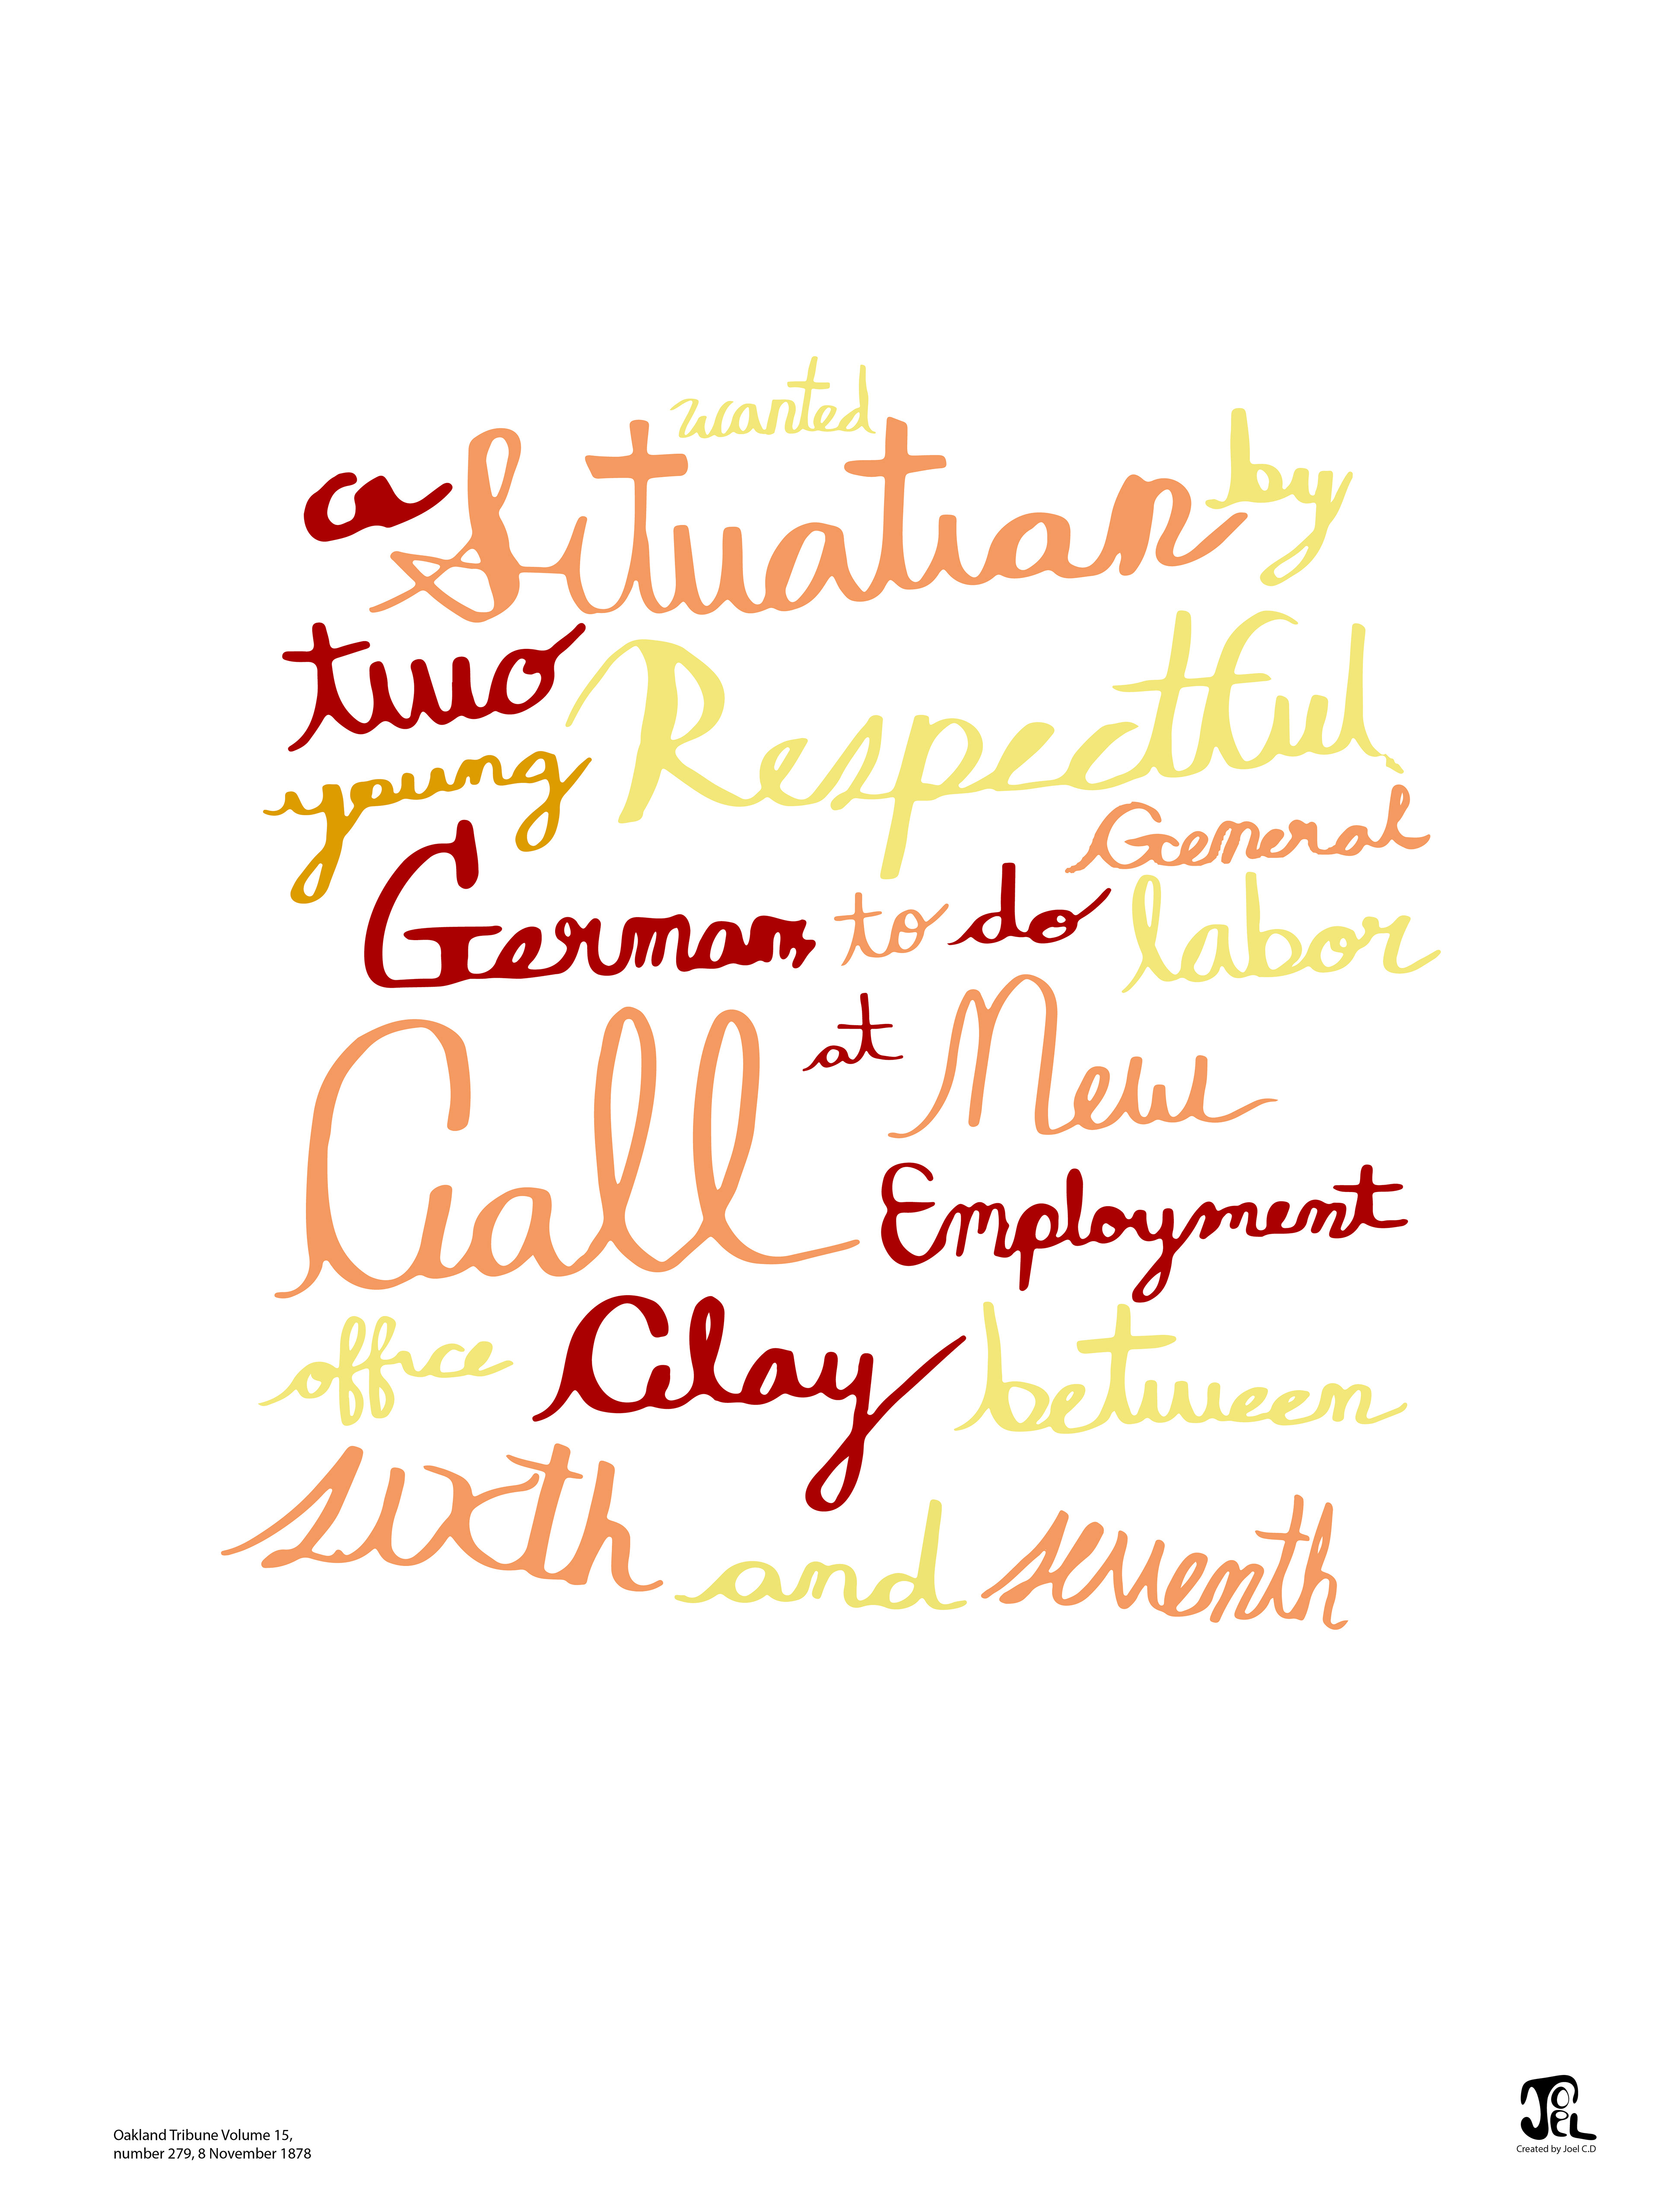 wanted
a Situation by
two Respectful
young General
to do labor
Call at New
Employment
office Clay between
sixth and seventh
Oakland Tribune Volume 15,
number 279, 8 November 1878
JOEL
Created by Joel C.D